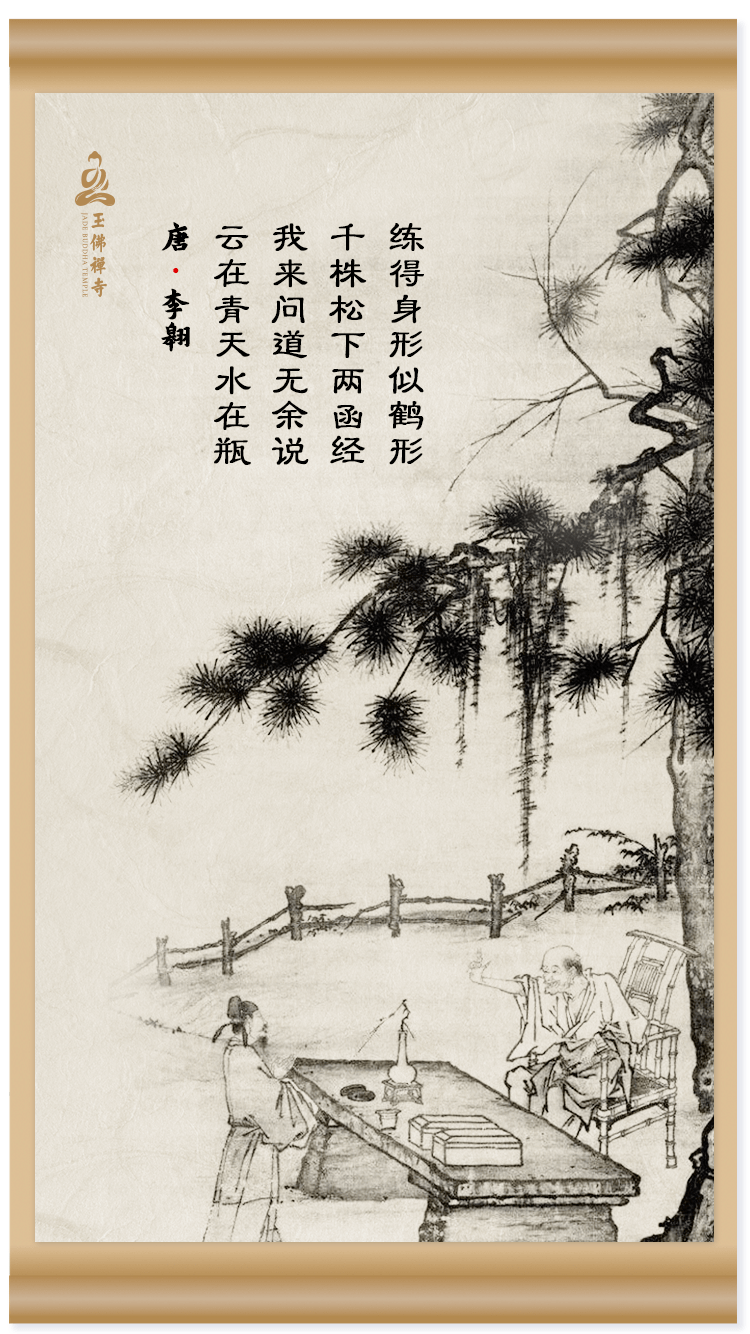 练得身形似鹤形
千株松下两函经
我来问道无余说
云在青天水在瓶
唐·李翱
玉佛禅寺
JADE BUDDHA TEMPLE